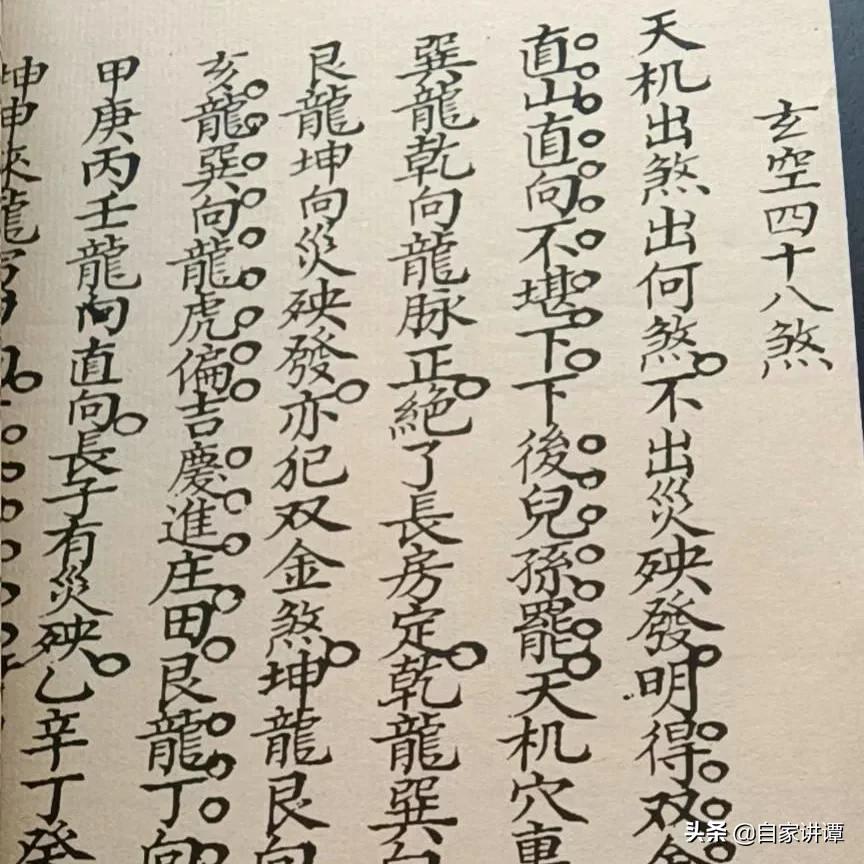 玄空四十八煞
天机出煞出何煞。不出災殃發。明得双金
直山直向不堪下。下後兒孫罷。天机穴
巽龍乾向龍脉正。絕了長房定。乾龍巽向
艮龍坤向災殃發。亦犯双金煞。坤龍艮向
亥龍巽向龍虎偏吉慶進庄田。艮龍丁向
甲庚丙壬龍向直向。長子有災殃。乙辛丁癸
坤申來龍
头条 @自家讲谭